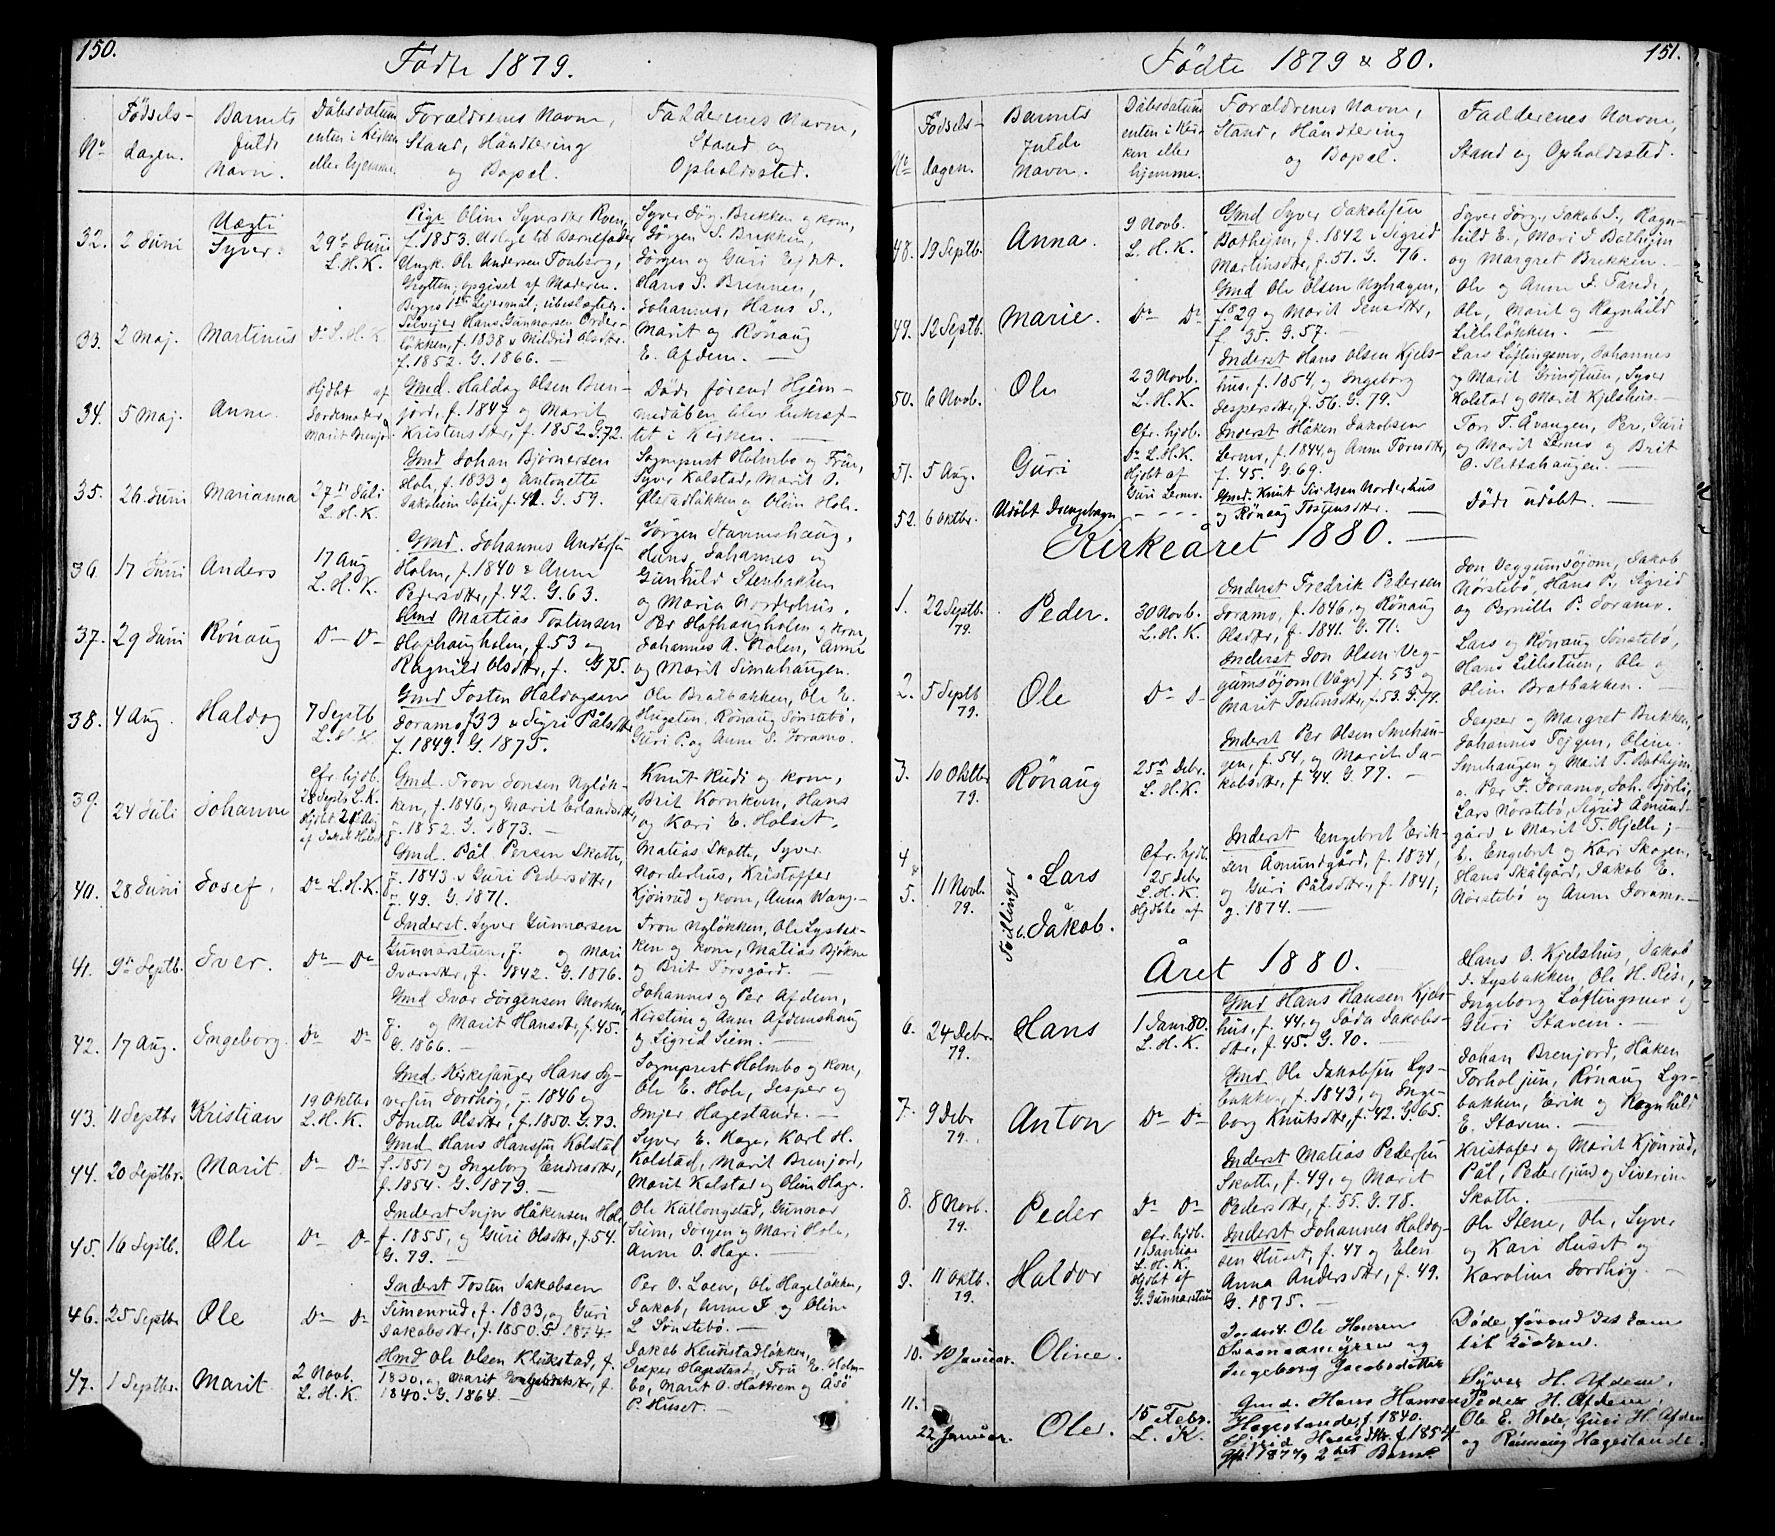 150.
Födte 1879.
No
Födsels-
dagen.
Barnets
fulde
Navn.
Dåbsdatum
enten i Kirken
eller hjemme.
Forældrenes Navne,
Stand, Håndtering
og Bopæl.
Faddernes Navne,
Stand og
Opholdssted.
32. 2 Juni
Uægte
Syver.
29de Juni
L. H. K.
Pige Oline Syversdtr
f. 1853. Udlagt til Barnefader
Ungk. Ole Andersen
opgivet af Moderen.
Syver Brekken og kone,
Jörgen S. Brekken,
Jörgen og Guri
Hans S. Brennen,
33. 2 Maj. Martinus Do L. H. K.
Selvejer Hans Gunnarsen
f. 1838 & Mildrid Olsdtr
f. 1852. G. 1866.
Johannes, Hans S.,
Marit og Rönaug
E. Afdem.
34. 5 Maj. Anne.
Hjdbt af
Jordemoder
Marit Brenjord
Gmd. Haldog Olsen Bren-
jord, f. 1847 og Marit
Kristensdtr, f. 1852. G. 72.
Döde förend Hjem-
medåben blev bekræf-
tet i Kirken.
35. 26 Juni Marianna
27de Juli
L. H. K.
Gmd Johan Björnersen
Hole, f. 1833 og Antonette
G. 59.
Sogneprest Holmbo og Frue,
Syver Kolstad, Marit
og Oline Hole.
36. 17 Juni Anders
17 Aug
L. H. K.
Gmd. Johannes Andersen
Holm, f. 1840 & Anne
Pedersdtr, f. 42. G. 63.
Jörgen Stavnshaug,
Hans, Johannes og
Gunhild Stenbakken
og Maria Norderhus.
37. 29 Juni Rönaug Do Do
Gmd Mattias Tostensen
f. 53 og
Ragnild Olsdtr, f. G. 75.
Per og kone,
Johannes A. Holen, Anne
og Marit Simahaugen.
38. 4 Aug. Haldog
7 Septb
L. H. K.
Gmd Tosten Haldogsen
Joramo f. 33 & Sigri Pålsdtr
f. 1849. G. 1875.
Ole Bratbakken, Ole E.
Hugsten, Rönaug Sönstebö,
Guri P. og Anne S. Joramo.
39. 24 Juli Johanne
Cfr. hjdb.
28 Septb L. K.
Hjdbt 21 Aug
Gmd. Tron Jonsen Nylök-
ken, f. 1846, og Marit Erlandsdtr,
f. 1852. G. 1873.
Knut Rudi og kone,
Brit Kornkven, Hans
og Kari E. Holset.
40. 28 Juni Josef, Do L. H. K.
Gmd. Pål Persen Skotte,
f. 1843 & Guri Pedersdtr,
f. 49. G. 1871.
Matias Skotte, Syver
Norderhus, Kristoffer
Kjönrud og kone, Anna Wang.
41. 9de Septb. Iver. Do Do
Inderst. Syver Gunnarsen
Gunnarstuen, f. og Mari
Ivarsdtr, f. 1842. G. 1876.
Tron Nylökken, Ole Lysbak-
ken og kone, Matias
og Brit Forsgård.
42. 17 Aug. Ingeborg. Do Do
Gmd Ivar Jörgensen Morken,
f. og Marit Hansdtr, f. 45.
G. 1866.
Johannes og Per Afdem,
Kirstine og Anne Afdemshaug
og Sigrid Siem.
43. 11 Septbr Kristian
19 Oktbr
L. H. K.
Gmd. Kirkesanger Hans Sy-
versen Jordhöy, f. 1846 og
Tonette Olsdtr, f. 1850. G. 73.
Sogneprest Holmbo og kone,
Ole E. Hole, Jesper og
Inger Hagestande.
44. 20 Septbr. Marit. Do Do
Gmd Hans Hansen Kolstad
f. 1851 og Ingeborg Endresdtr,
f. 1854. G. 1879.
Syver E. Hage, Karl H.
Kolstad, Marit Brenjord,
Marit Kolstad og Oline Hage.
45. 16 Septb. Ole Do Do
Inderst Svejn Håkensen Hole,
f. 1855, og Guri Olsdtr, f. 54.
G. 79.
Ole Kollongstad, Gunnar
Siem, Jörgen og Mari Hole,
Anne O. Hage.
46. 25 Septbr Ole Do Do
Inderst Tosten Jakobsen
Simenrud, f. 1833, og Guri
Jakobsdtr, f. 1850. G. 1874.
Per O. Loen, Ole Hagelökken,
Jakob, Anne F. og Oline
L. Sönstebö.
47. 1 Septbr. Marit.
2 Novb.
L. H. K.
Hmd Ole Olsen Klukstad, f.
1830, og Marit Engebretsdtr, f.
1840. G. 1864.
Jakob Klukstadlökken,
Jesper Hagestad, Fru E. Holm-
bo, Marit O. Hattrem og Åsö
P. Huset.
151.
Födte 1879 & 80.
No
Födsels-
dagen.
Barnets
fulde
Navn.
Dåbsdatum
enten i Kir-
ken eller
hjemme.
Forældrenes Navne,
Stand, Håndtering
og Bopæl.
Faddernes Navne,
Stand og Opholdssted.
48. 19 Septb. Anna.
9 Novb.
L. H. K.
Gmd Syver Jakobsen
Bothejm, f. 1842 & Sigrid
Martinsdtr, f. 51. G. 76.
Syver Jörg., Jakob J., Ragn-
hild E., Mari J Bothejm
og Margret Brekken.
49. 12 Septb. Marie. Do Do
Gmd Ole Olsen Nyhagen,
f. 29 og Marit Jensdtr,
f 35. G. 57.
Ole og Anne J. Tande,
Ole, Marit og Ragnhild
Lillelökken.
50. 6 Novb. Ole
23 Novb.
L. H. K.
Inderst Hans Olsen Kjels-
hus, f. 1854, og Ingeborg
Jespersdtr, f. 56. G. 79.
Lars Löftingsmo, Johannes
og Marit Grindstuen, Syver
Kolstad og Marit Kjelshus.
51. 5 Aug. Guri
Cfr. hjdb.
Do L. H. K.
Hjdbt af
Guri Lermo.
Inderst Håken Jakobsen
Lermo, f. 1844 og Anne Toresdtr,
f. 45. G. 69.
Tore T. Avangen, Per, Guri
og Marit Lermo og Brit
O. Slettahaugen.
52. 6 Oktbr. Udöbt Drengebarn - - - -
Gmd. Knut Norderhus
og Rönaug Tostensdtr.
Döde udöbt.
Kirkeåret 1880.
1. 22 Septb.
79.
Peder.
30 Novb.
L. H. K.
Inderst Fredrik Pedersen
Joramo, f. 1846, og Rönaug
Olsdtr, f. 1841. G. 71.
Jon Veggumsöjom, Jakob
Nörstebö, Hans P., Sigrid
og Pernille P. Joramo.
2. 5 Septb
79.
Ole Do D
Inderst Jon Olsen Veg-
gumsöjom (Våge) f. 53 og
Marit Tostensdtr, f. 53. G. 79.
Lars og Rönaug Sönstebö,
Hans Liehstuen, Ole og
Oline Bratbakken.
3. 10 Oktbr
79.
Rönaug
25de Debr.
L. H. K.
Inderst Per Olsen Smehau-
gen, f. 54, og Marit Ja-
kobsdtr, f. 44. G. 77.
Jesper og Margret Brekken,
Johannes Tejgen, Oline
Smehaugen og Marit T. Bothejm.
4
&
5. 11 Novb.
79.
Tvillinger
a. Lars
b. Jakob.
Cfr. hjdb.
25 Debr
L. H. K.
Hjdbte af
Inderst Engebret Erik-
sen Åmundgård, f. 1834,
og Guri Pålsdtr, f. 1841,
g. 1874.
a. Per F. Joramo, Joh. Bjorli,
Lars Nörstebö, Sigrid Åmund-
gård & Marit T. Hjelle;
b. Engebret og Kari Skogen,
Hans Skålgård, Jakob E.
Nörstebö og Anne Joramo.
Året 1880.
6. 24 Debr
79.
Hans
1 Jan. 80.
L. H. K.
Gmd Hans Hansen Kjels-
hus, f. 44, og Jöda Jakobs-
dtr, f. 45. G. 70.
Hans O. Kjelshus, Jakob
J. Lysbakken, Ole H. Rise,
Ingeborg Löftingsmo og
Guri Stavem.
7. 9 Debr
79.
Anton Do Do
Gmd Ole Jakobsen Lys-
bakken, f. 1843, og Inge-
borg Knutsdtr, f. 42. G. 65.
Johan Brenjord, Håken
Torholjun, Rönaug Lys-
bakken, Erik og Ragnhild
E. Stavem.
8. 8 Novb.
79.
Peder Do Do
Inderst Matias Pedersen
Skotte, f. 49, og Marit
Pedersdtr, f. 55. G. 78.
Kristofer og Marit Kjönrud,
Pål, Peder (jun) og Siverine
Skotte.
9. 11 Oktb.
79.
Haldor
Cfr. hjdb.
1 Januar
L. H. K.
Hjdbt af
G. Gunnarstuen
Inderst Johannes Haldog-
sen Huset, f. 47 og Elen
Anna Andersdtr, f. 49.
G. 1875.
Ole Stene, Ole, Syver
og Kari Huset og
Karoline Jordhöy.
10. 10 Januar. Oline.
Inderst. Ole Hansen
og
Ingeborg Jacobsdatter
Döde förend det kom
til Daaben.
11.
22 Januar. Ole.
15 Febr.
L. K.
Gmd. Hans Hansen
Hagestande, f. 1840.
Hansdtr. f. 1854
Gft. 1877, 2det Barn.
Syver H. Afdem,
Peder H. Afdem,
Ole E. Hole, Guri H. Afdem
og Rönnaug Hagestande.